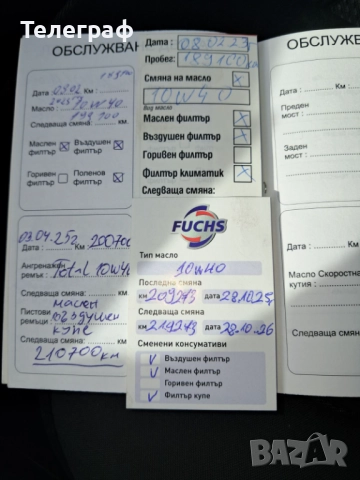 Телеграф
ОБСЛУЖВАН
Дата : 08.02 Км :
Масло : 10W40
Следваща смяна: 199 100
Маслен филтър
Въздушен филтър
Горивен филтър
Поленов филтър
03.04.25г 200700
Дата : Км :
Ангренажен ремък : Total 10W40
Следваща смяна:
маслен
Пистови ремъци : въздушен
купе
Следваща смяна:
210700км
Дата : 08.02.25г
Пробег: 189100км
Смяна на масло
10W40
Вид масло
Маслен филтър
Въздушен филтър
Горивен филтър
Филтър климатик
Следваща смяна:
FUCHS
Тип масло
10W40
Последна смяна
км 209243 дата 28.10.25г
Следваща смяна
км 219243 дата 28.10.26
Сменени консумативи
Въздушен филтър
Маслен филтър
Горивен филтър
Филтър купе
ОБСЛУЖ
Дата :
Преден мост :
Заден мост :
Следваща смяна:
Дата :
Масло Скоростна кутия :
Следваща смяна
bazar